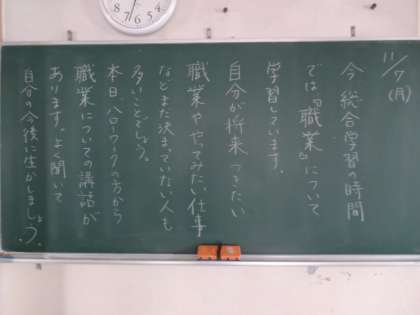 11/7(月)
今、総合学習の時間
では『職業』について
学習しています。
自分が将来つきたい
職業ややってみたい仕事
などまだ決まっていない人も
多いことでしょう。
本日、ハローワークの方から
職業についての講話が
あります。よく聞いて
自分の今後に生かしましょう。